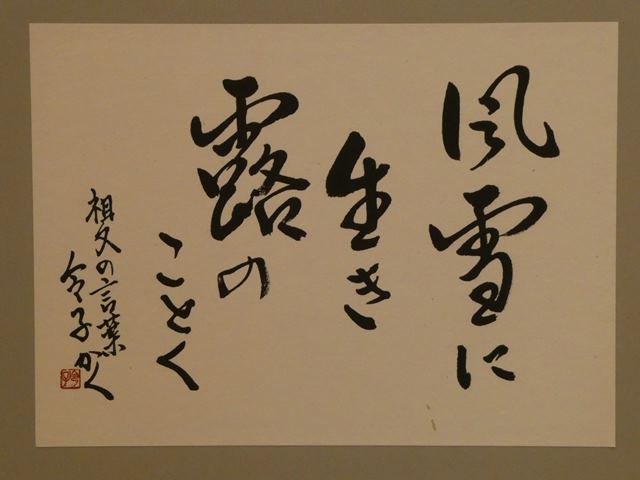 風雪に
生き
露の
ことく
祖父の言葉
令子かく